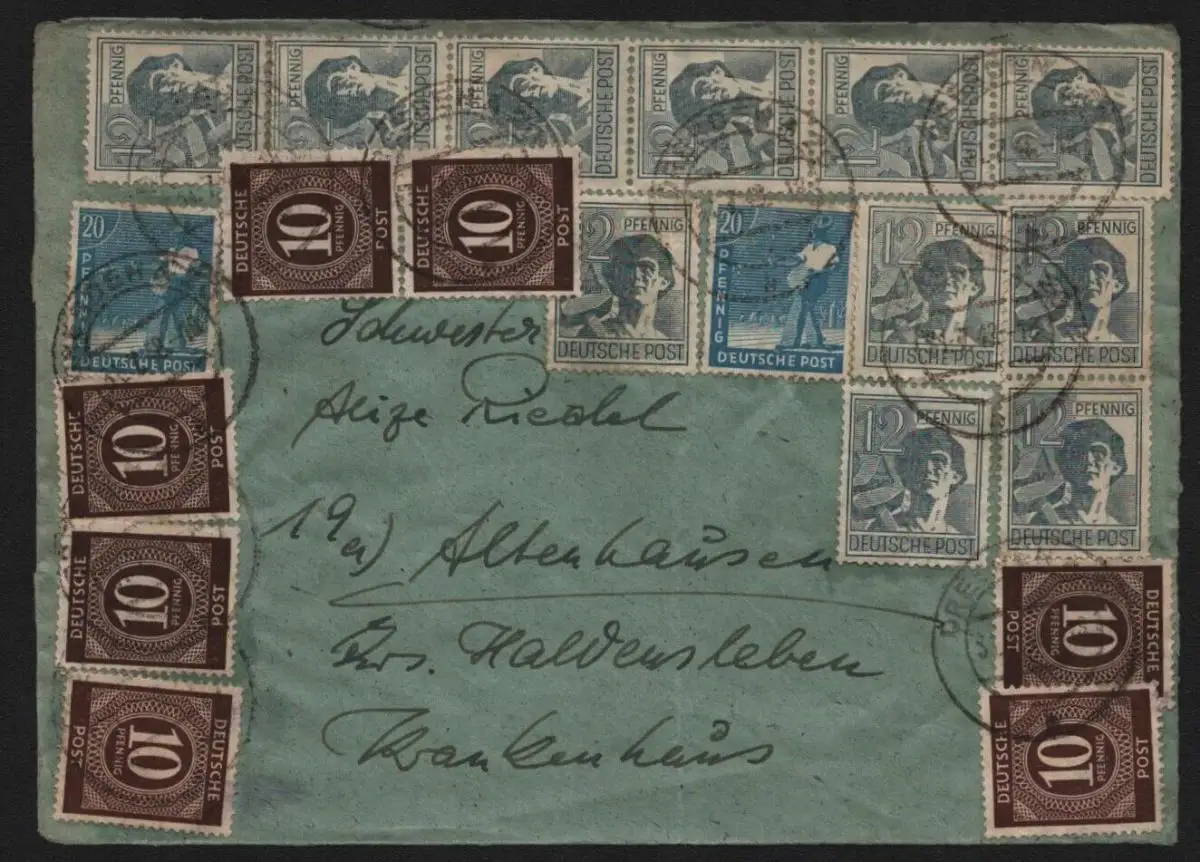 12 PFENNIG DEUTSCHE POST 12 PFENNIG DEUTSCHE POST 12 PFENNIG DEUTSCHE POST 12 PFENNIG DEUTSCHE POST 12 PFENNIG DEUTSCHE POST 12 PFENNIG DEUTSCHE POST
DEUTSCHE 10 PFENNIG POST
DEUTSCHE 10 PFENNIG POST
20 PFENNIG DEUTSCHE POST
2 PFENNIG DEUTSCHE POST
20 PFENNIG DEUTSCHE POST
12 PFENNIG DEUTSCHE POST
12 PFENNIG DEUTSCHE POST
Schwester
Riedel
19a) Altenhausen
Krs. Haldensleben
Krankenhaus
DEUTSCHE 10 PFENNIG POST
DEUTSCHE 10 PFENNIG POST
DEUTSCHE 10 PFENNIG POST
12 PFENNIG DEUTSCHE POST
12 PFENNIG DEUTSCHE POST
DEUTSCHE 10 PFENNIG POST
DEUTSCHE 10 PFENNIG POST